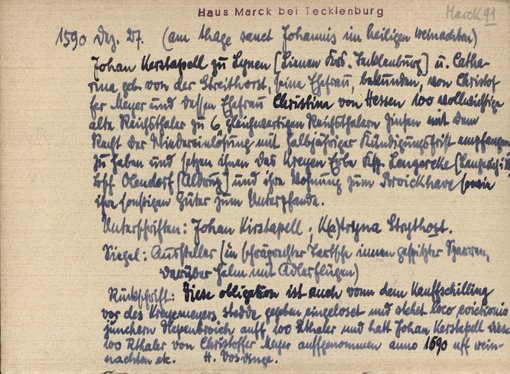 Haus Marck bei Tecklenburg
Marck 91
1590 Dez. 27. (am thage sanct Johannis im heiligen weinachten)
Johan Kerstapell zu Lynen [Lienen Krs. Tecklenburg] u. Catha-
rine geb. von der Streithorst, seine Ehefrau, bekunden, von Christof-
fer Meyer und dessen Ehefrau Christine von Hessen 100 vollwichtige
alte Reichsthaler zu 6 gleichwertigen Reichsthalern Zinsen mit dem
Recht der Wiedereinlösung mit halbjähriger Kündigungsfrist empfangen
zu haben und setzen ihnen das Kreyen Erbe
Olendorf und ihre Wohnung zum Broickhave sowie
ihre sonstigen Güter zum Unterpfande.
Unterschriften: Johan Kirstapell, K(a)tryna Strythost.
Siegel: Aussteller (in Tartsche innen Sparren,
darüber Helm mit Adlerflügen)
Rückschrift: Diese obligation ist auch vonn dem Kauffschilling
vor des Kreyemeyers stedde gegeben eingeloset und stehet loco evictionis
junchern Diepenbroich auff 100 Rthaler und hatt Johan Kerstapell diese
100 Rthaler von Christoffer Meyer auffgenommen anno 1590 uff wein-
nachten etc. H.